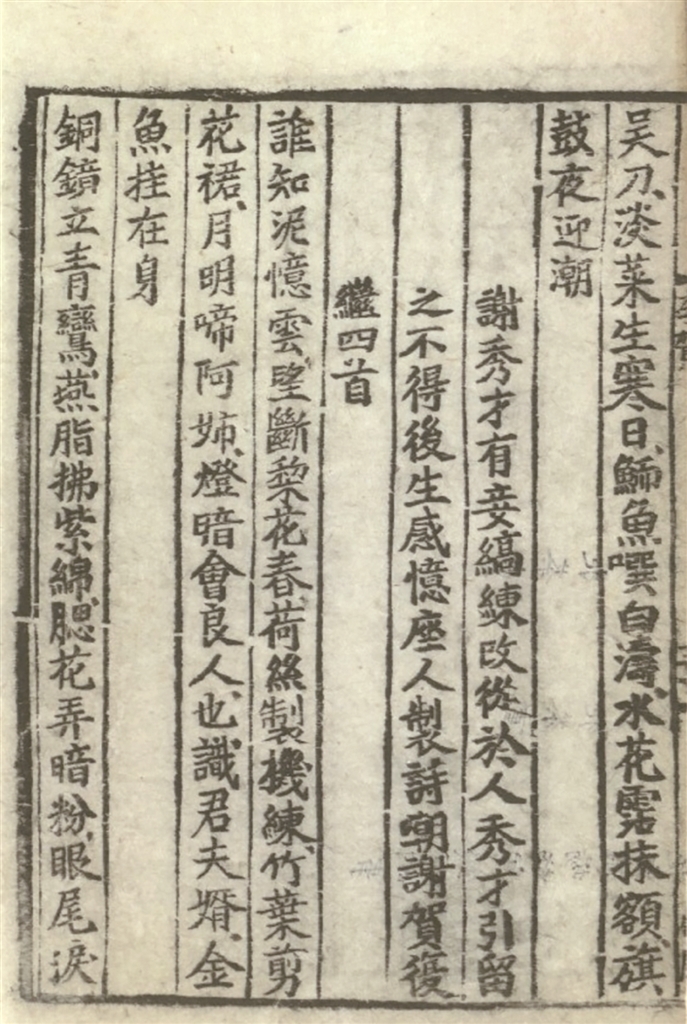 吴刀、淡菜生寒日、鮞魚噀白濤、水花霑抹額、旗
鼓夜迎潮
謝秀才有妾縞練改從於人秀才引留
之不得後生感憶座人製詩嘲謝賀復
繼四首
誰知泥憶雲、望斷棃花春、荷絲製機練、竹葉剪
花裙、月明啼阿姉、燈暗會良人、也識君夫壻、金
魚挂在身
銅鏡立青鸞、燕脂拂紫綿、腮花弄暗粉、眼尾淚